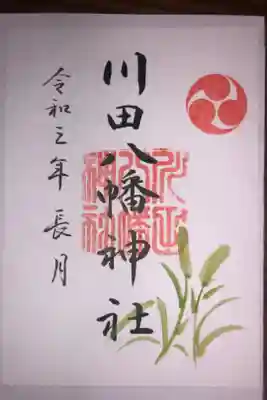 川田八幡神社
令和三年 長月